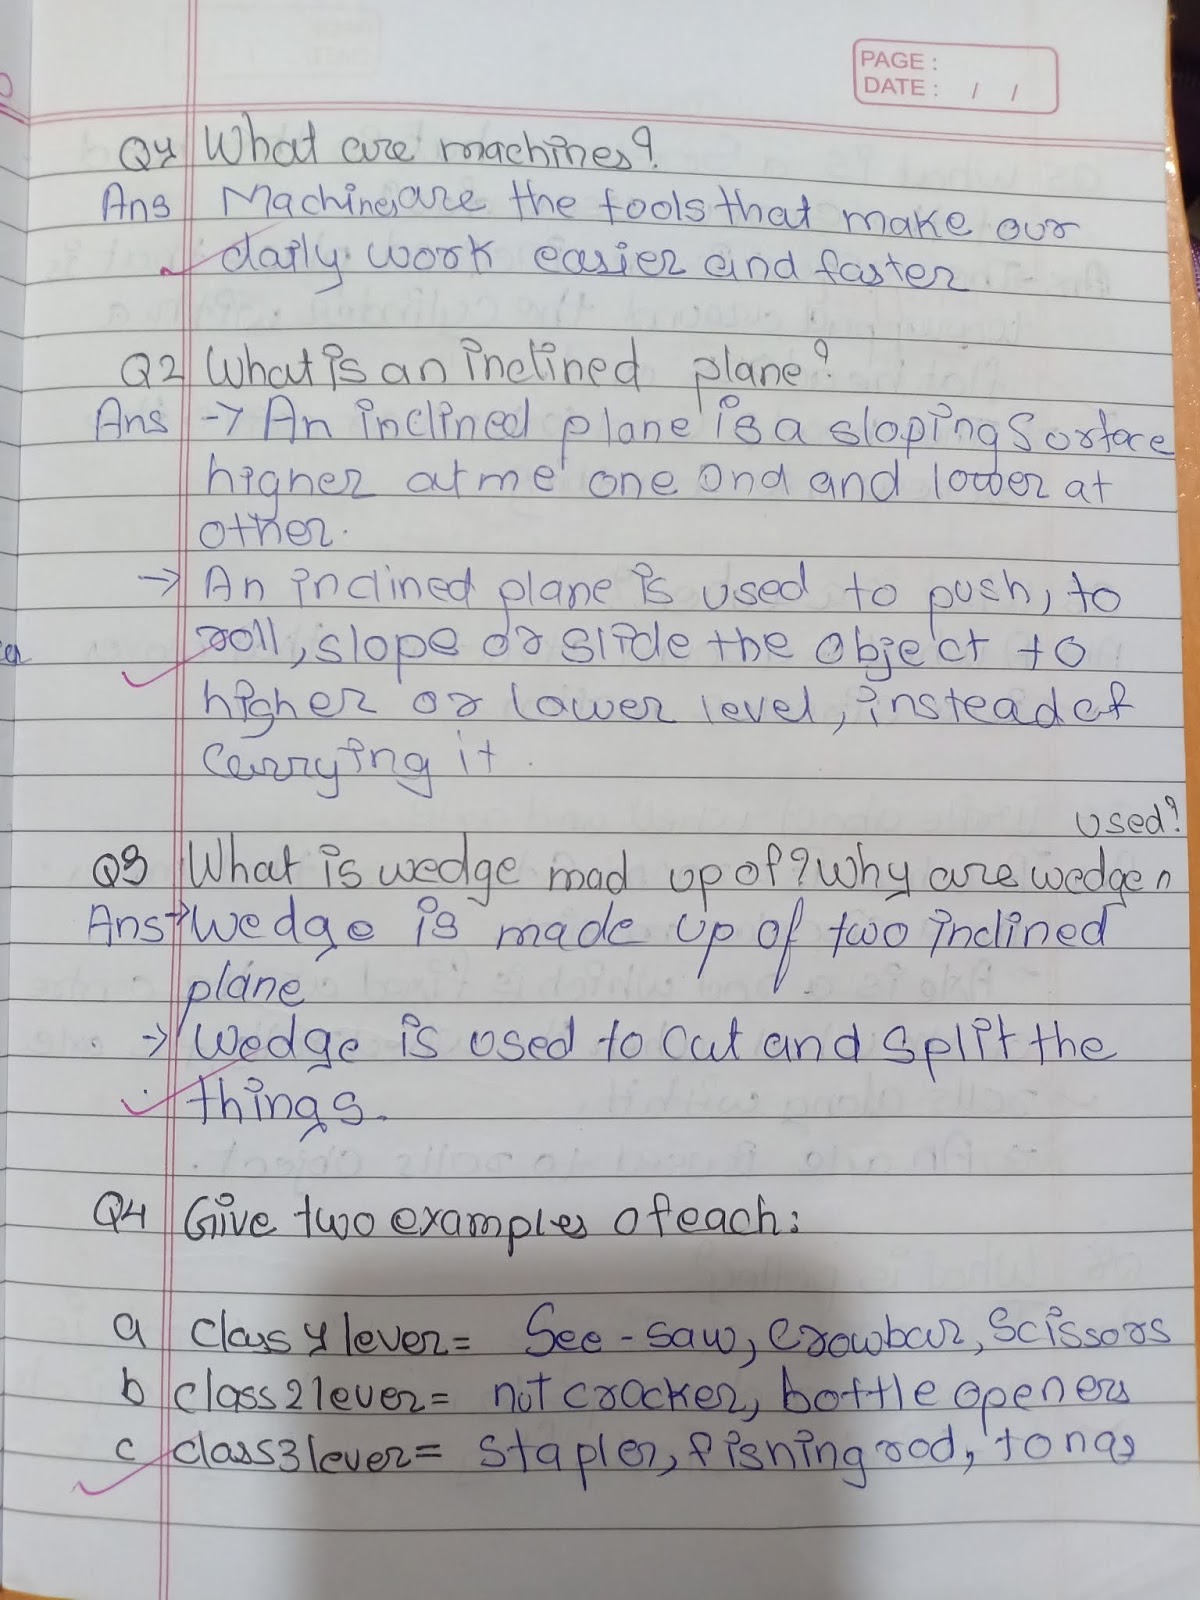 PAGE :
DATE : / /
Q1 What are machines?
Ans Machines are the tools that make our
daily work easier and faster
Q2 What is an inclined plane?
Ans -> An inclined plane is a sloping Surface
higher at me one end and lower at
other.
-> An inclined plane is used to push, to
roll, slope or slide the object to
higher or lower level, instead of
carrying it.
used?
Q3 What is wedge mad up of? Why are wedge
Ans -> Wedge is made up of two inclined
plane
-> Wedge is used to cut and split the
things.
Q4 Give two examples of each:
a class 1 lever = See-saw, crowbar, Scissors
b class 2 lever = nut cracker, bottle openers
c class 3 lever = stapler, fishing rod, tongs